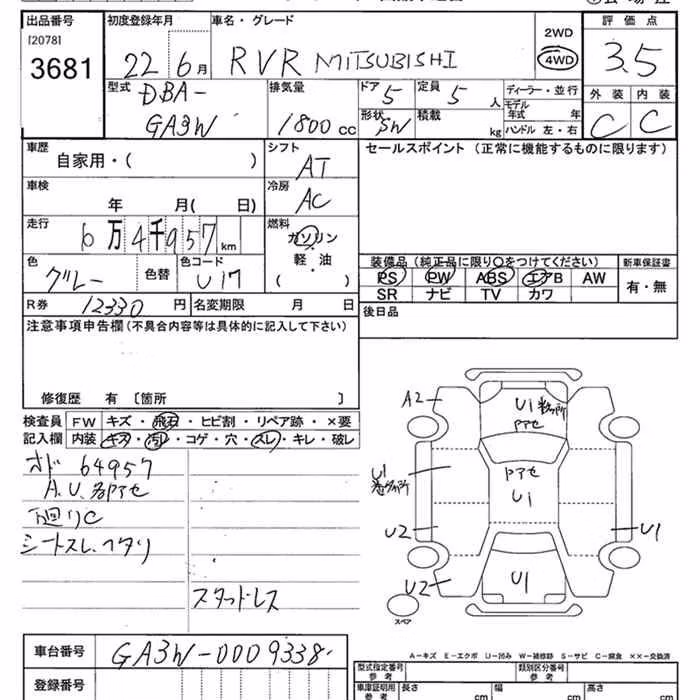 出品番号 初度登録年月 車名・グレード 評価点
[2078]
3681 22 6月 RVR MITSUBISHI 2WD 4WD 3.5
型式 DBA-GA3W 排気量 1800cc ドア 5 定員 5人 ディーラー・並行
形状 SW 積載 kg モデル年式 年 ハンドル 左・右
外装 C 内装 C
車歴 自家用・( ) シフト AT
車検 年 月( 日) 冷房 AC
走行 6万4千957km 燃料 ガソリン 軽・油 ( )
色 グレー 色替 色コード U17
R券 12330円 名変期限 月 日
セールスポイント (正常に機能するものに限ります)
装備品 (純正品に限り○をつけてください) 新車保証書
PS PW ABS エアB AW 有・無
SR ナビ TV カワ
後日品
注意事項申告欄(不具合内容等は具体的に記入して下さい)
修復歴 有 [箇所 ]
検査員 FW キズ・飛石・ヒビ割・リペア跡・×要
記入欄 内装 キズ・汚レ・コゲ・穴・スレ・キレ・破レ
オド 64957
A.U.各アセ
下廻りC
シートスレ.ヘタリ
スタッドレス
A2
U1
アセ
アセ
U1
U1
U2 U1
U2 U1
スペア
A-キズ E-エクボ U-凹み W-補修跡 S-サビ C-腐食 ××-交換済
車台番号 GA3W-0009338
登録番号
型式指定番号 参考 類別区分番号 参考
車庫証明用 参考 長さ cm 幅 cm 高さ cm